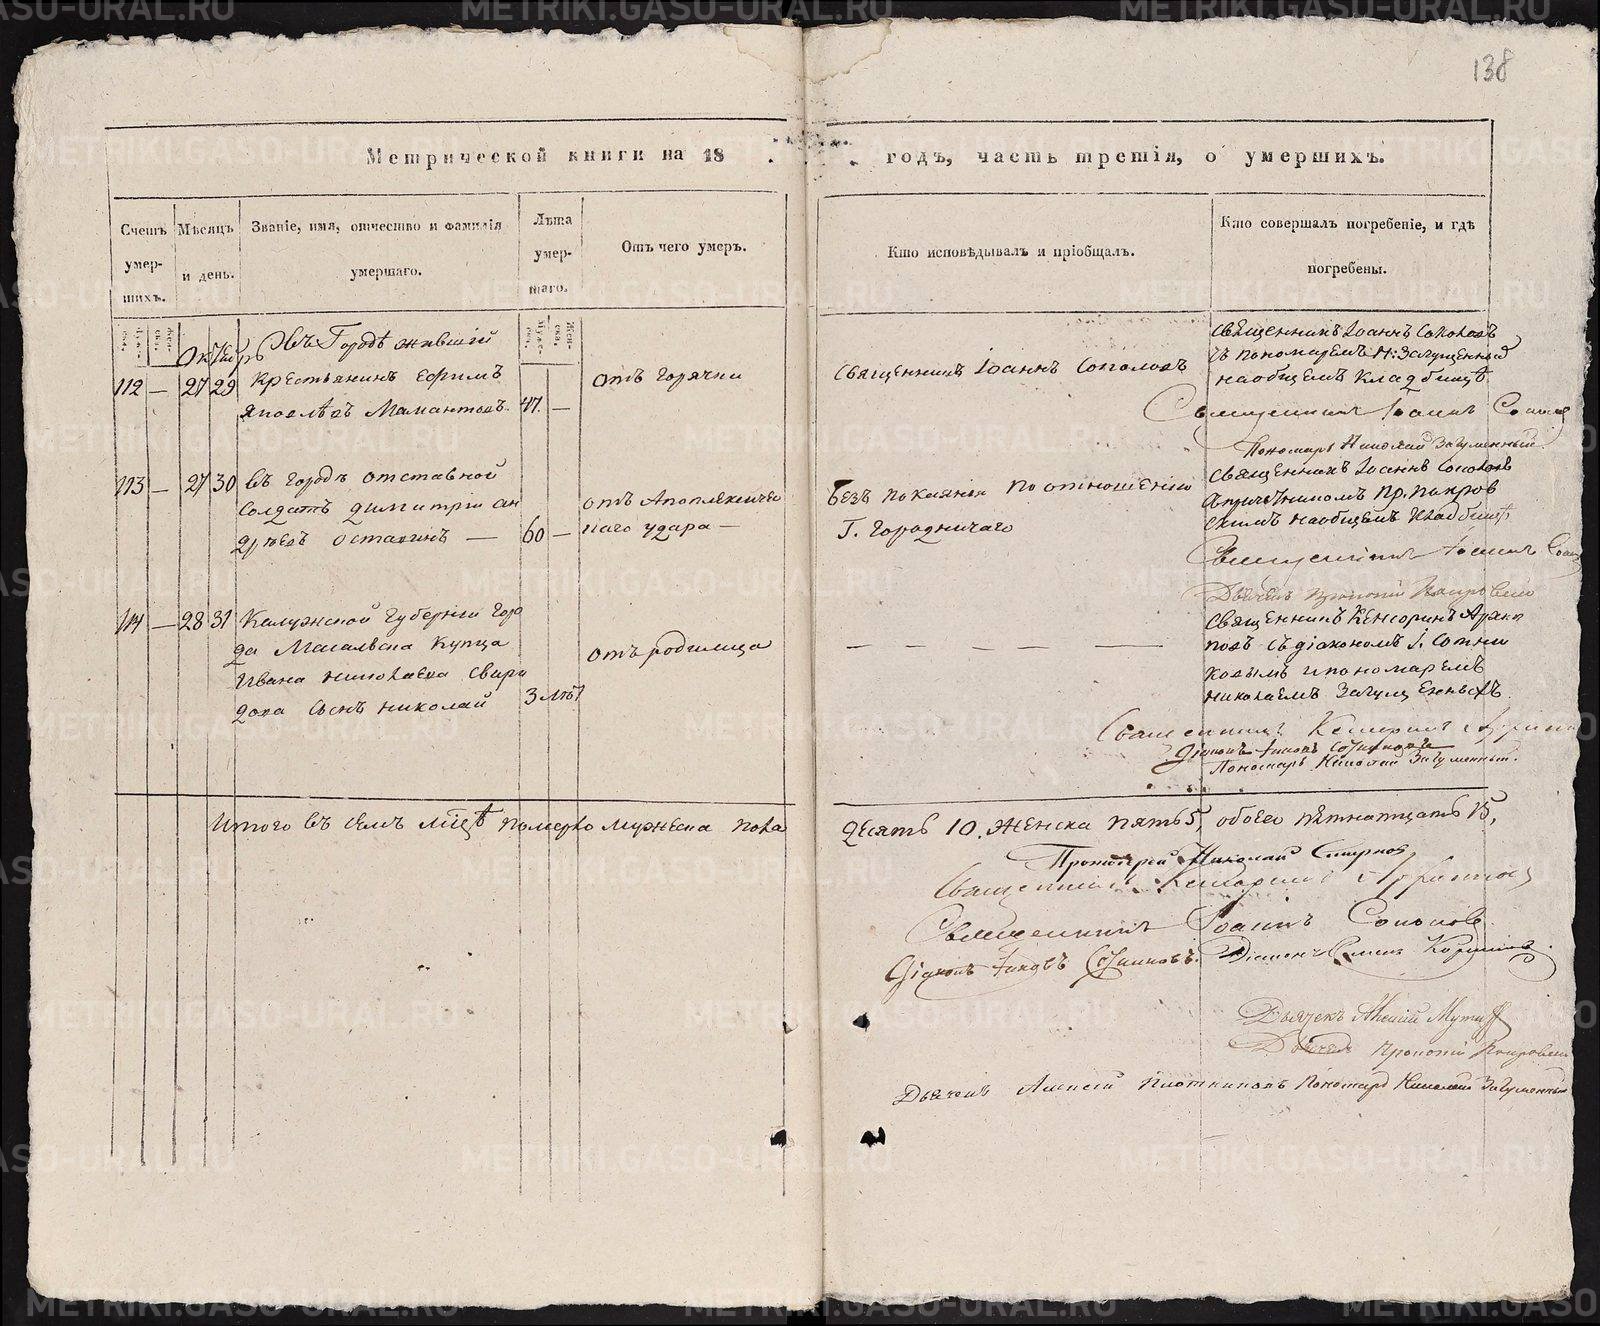 138
Метрической книги на 18 годъ, часть третія, о умершихъ.
Счетъ умер- шихъ.
Мѣсяцъ и день.
Званіе, имя, отчество и фамилія умершаго.
Лѣта умер- шаго.
Отъ чего умеръ.
Кто исповѣдывалъ и пріобщалъ.
Кто совершалъ погребеніе, и гдѣ погребены.
Въ Городѣ жившій
112 — 27 29 крестьянинъ Ефимъ
Яковлевъ Мамантовъ. 47. —
отъ горячки
Священникъ Іоаннъ Соколовъ
Священникъ Іоаннъ Соколовъ
съ пономаремъ Н: Загуменный
наобщемъ кладбищѣ
Священникъ Іоаннъ
Пономарь Николай Загуменный
113 — 27 30 въ городѣ отставной
Солдатъ Димитрій Ан
дрѣевъ Остаѳинъ — 60 —
отъ Апоплексичес
наго удара —
безъ покаянія по отношенію
Г. Городничаго
Священникъ Іоаннъ Соколовъ
Пр. Покров
скимъ наобщемъ Кладбищѣ
Священникъ Іоаннъ
Дьячекъ Прокопій
114 — 28 31 Калужской Губерніи Горо
да Масальска Купца
Ивана Николаева Свири
дова сынъ Николай 3 лѣт
отъ родимца
— — — — —
Священникъ Кенсоринъ
повъ съ діакономъ І. Сотни
ковымъ и пономаремъ
Николаемъ Загуменнымъ
Священникъ Кенсоринъ
Діаконъ Іаковъ Сотниковъ
Пономарь Николай Загуменный.
Итого въ семъ мѣсѣ померло мужеска пола десять 10. Женска пять 5, обоего пятнатцать 15,
Протоіерей Николай Смирнов
Священникъ Кенсоринъ
Священникъ Іоаннъ Соколовъ
Діаконъ Іаковъ Сотниковъ. Діаконъ
Дьячекъ Алексій
Дьячекъ Прокопій
Дьячекъ Алексѣй Плотниковъ Пономарь Николай Загуменный
METRIKI.GASO-URAL.RU